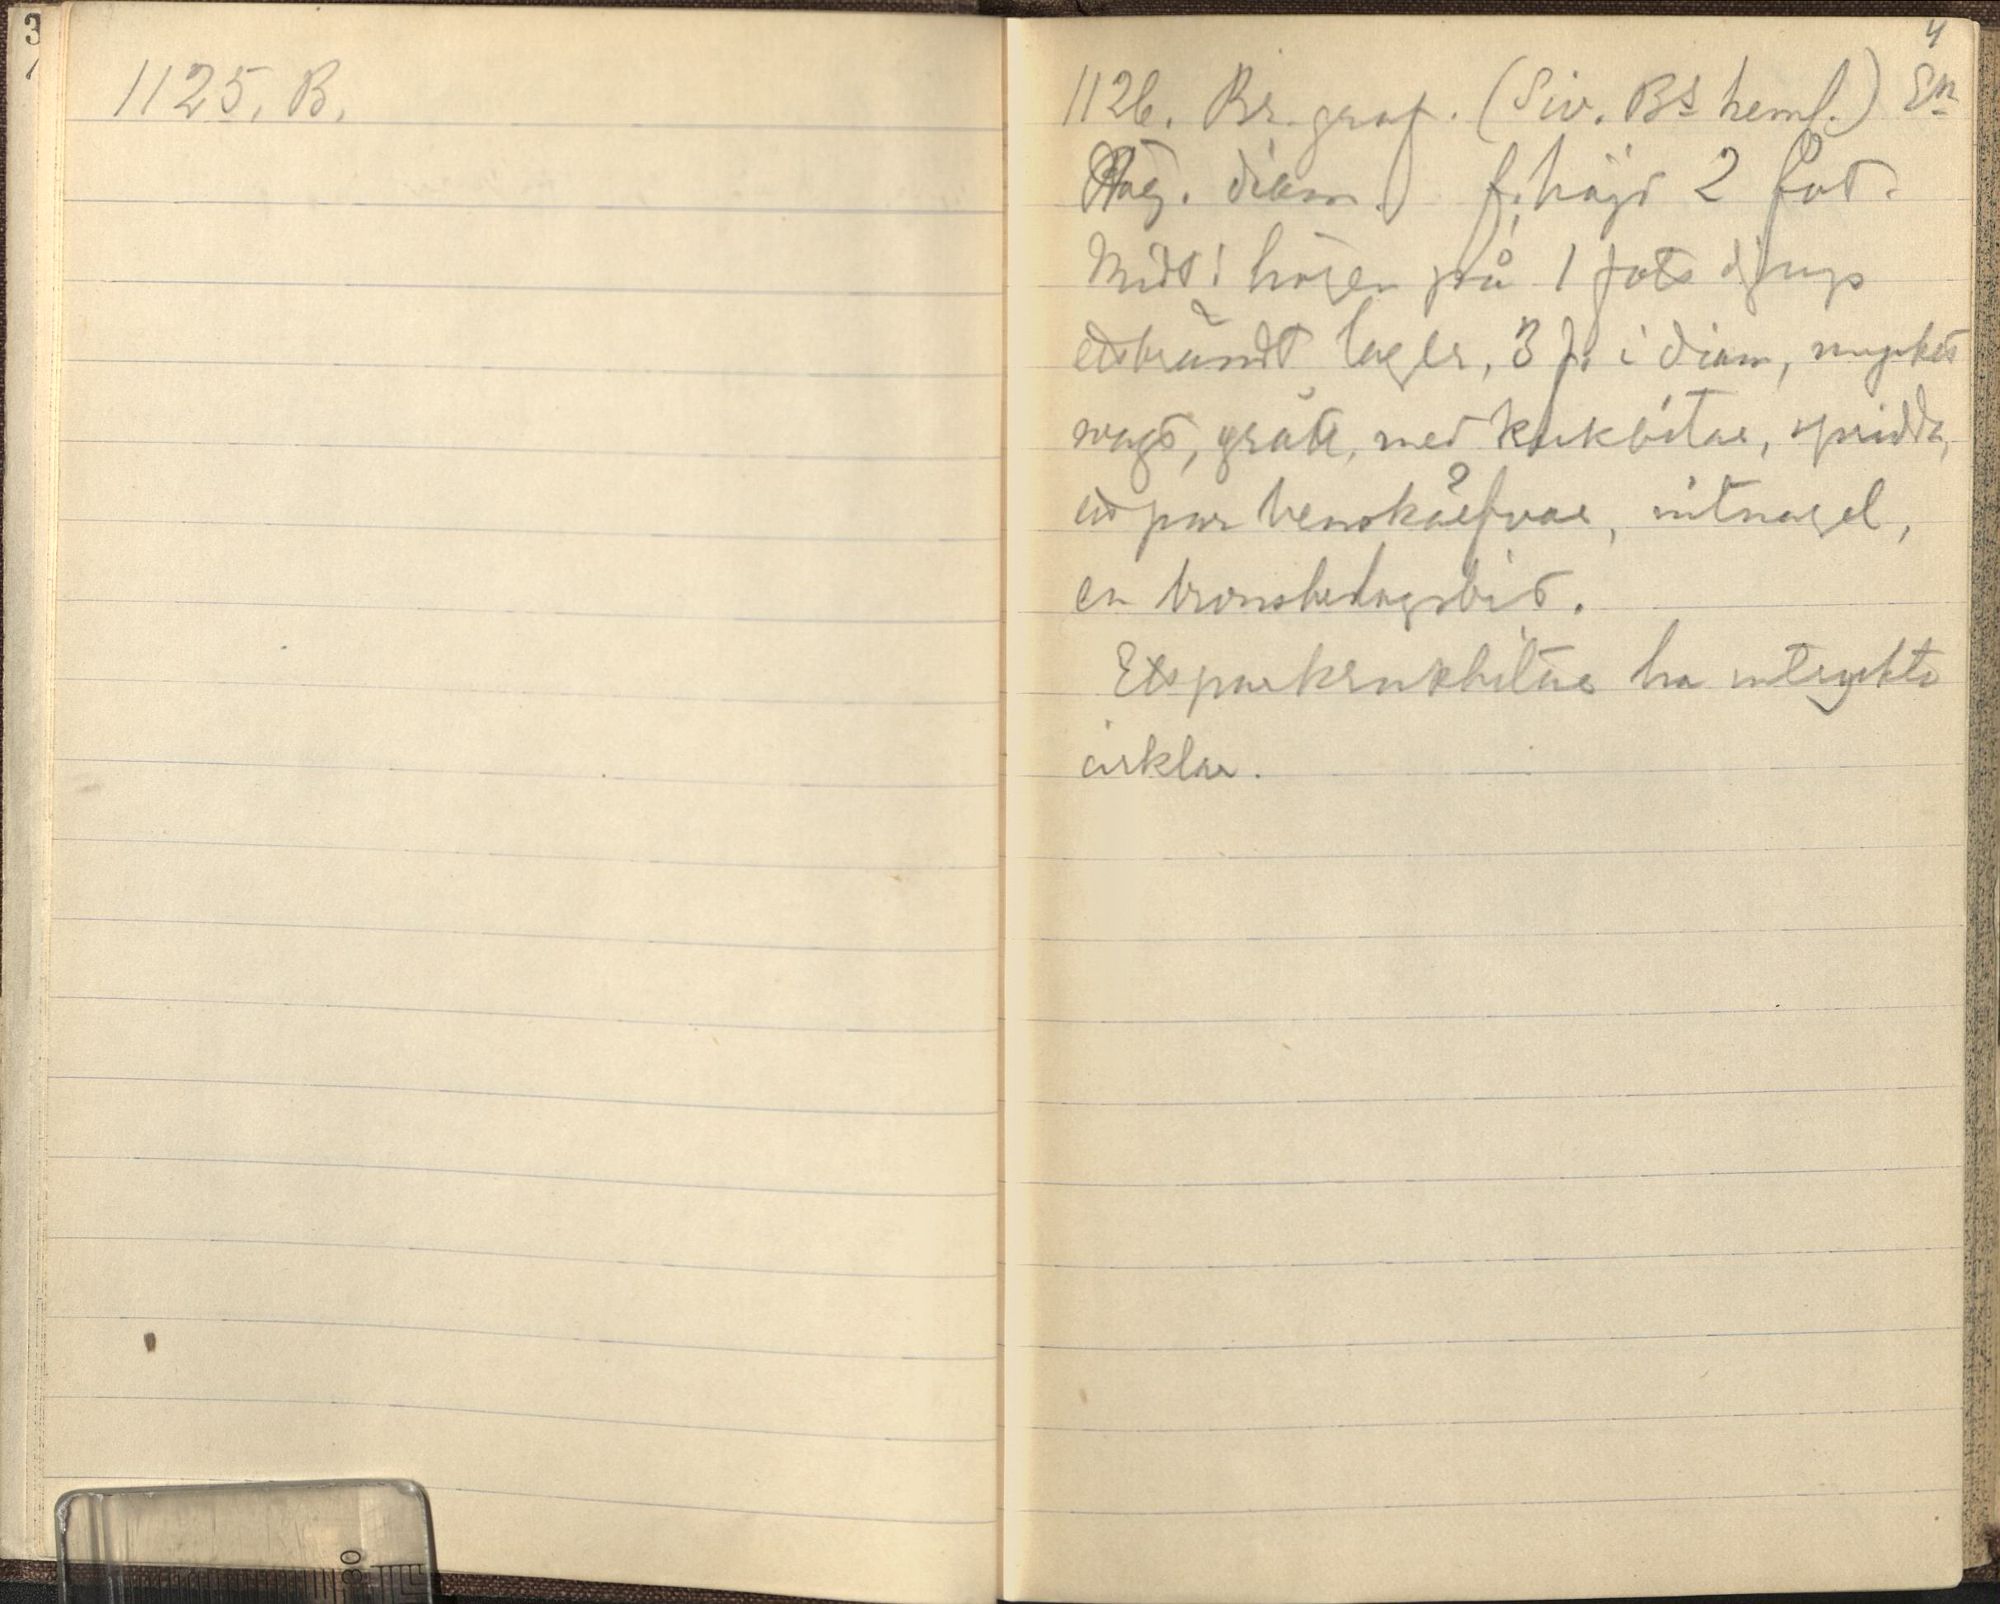 3
1125. B.
4
1126. Br. graf. (Siv. Bs heml.) En
Hög. diam. f. höjd 2 fot.
Midt i högen på 1 fots djup
ett brändt lager, 3 f. i diam, mycket
svagt, grått, med krukbitar, spridda,
ett par benskärfvar, nitnagel,
en bronsbeslagsbit.
Ett par krukbitar ha intryckta
cirklar.
30